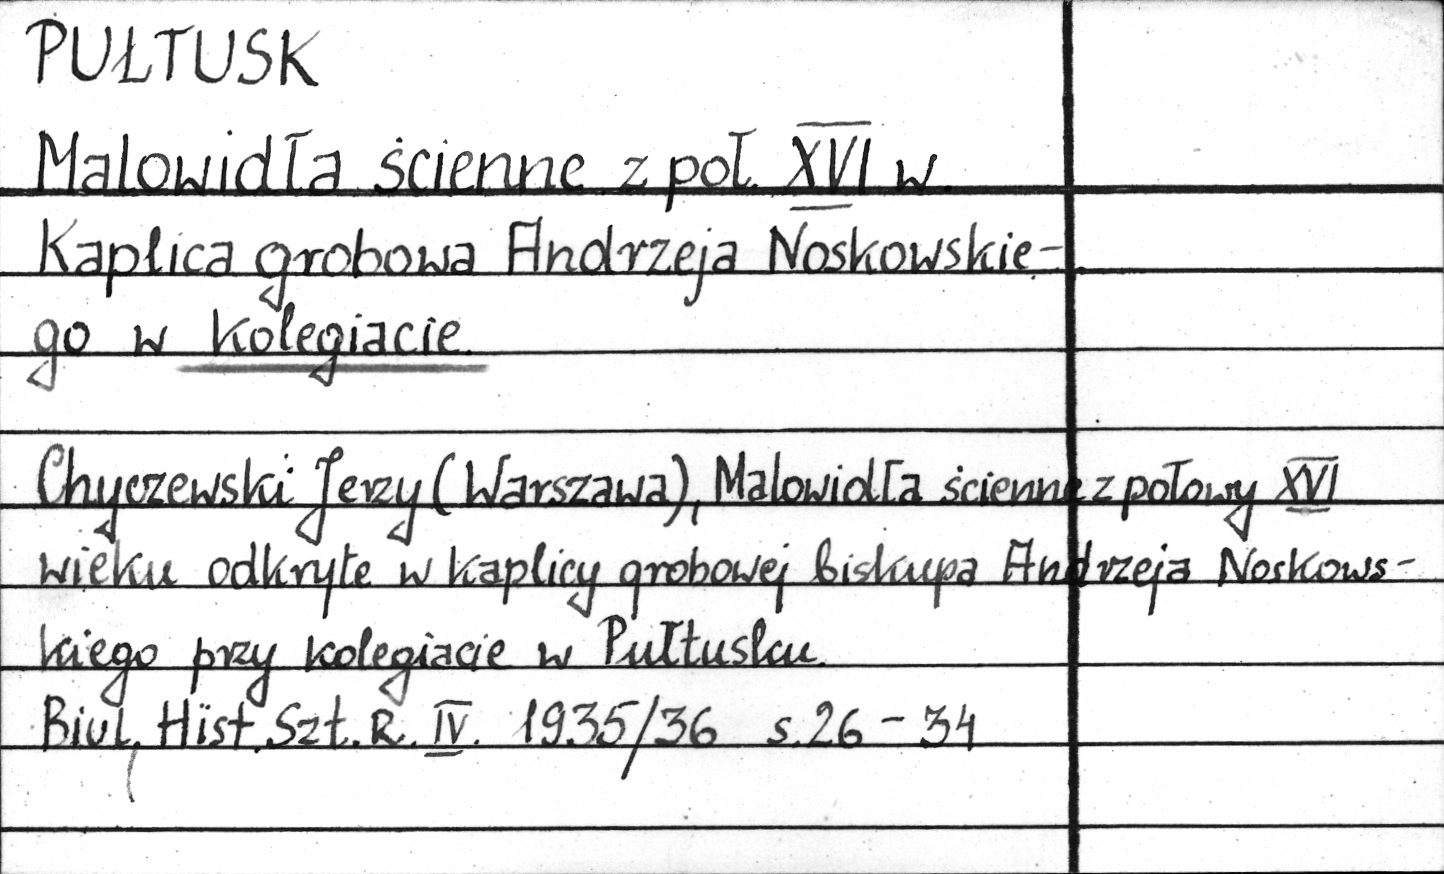 PUŁTUSK
Malowidła ścienne z poł. XVI w.
Kaplica grobowa Andrzeja Noskowskie-
go w kolegiacie.
Chyczewski Jerzy (Warszawa), Malowidła ścienne z połowy XVI
wieku odkryte w kaplicy grobowej biskupa Andrzeja Noskows-
kiego przy kolegiacie w Pułtusku.
Biul. Hist. Szt. R. IV. 1935/36 s. 26 - 34